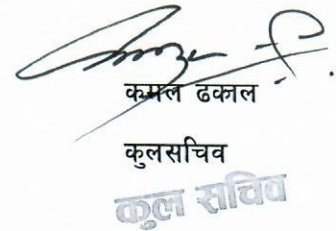 कमल ढकाल
कुलसचिव
कुल सचिव